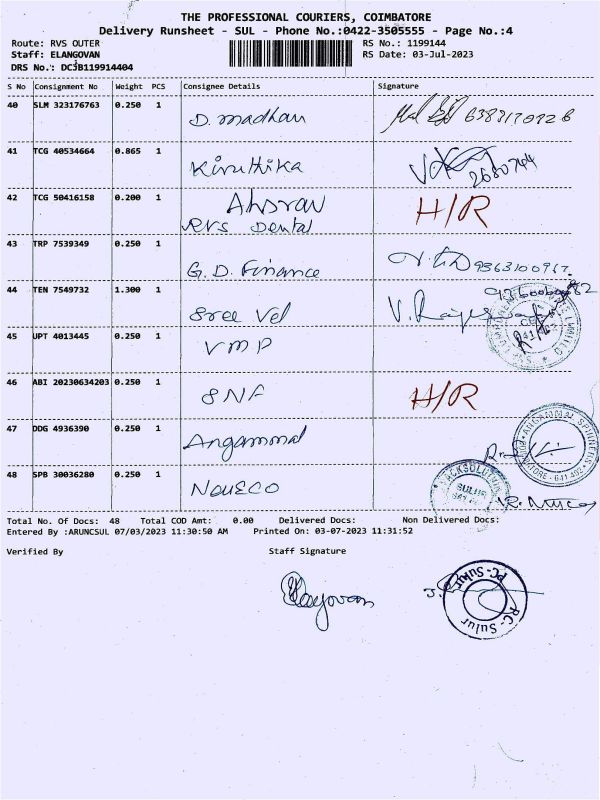 THE PROFESSIONAL COURIERS, COIMBATORE
Delivery Runsheet - SUL - Phone No.:0422-3505555 - Page No.:4
Route: RVS OUTER
RS No.: 1199144
Staff: ELANGOVAN
RS Date: 03-Jul-2023
DRS No.: DCJB119914404
S No Consignment No Weight PCS Consignee Details Signature
40 SLM 323176763 0.250 1 D. madhan
41 TCG 40534664 0.865 1 Kiruthika
42 TCG 50416158 0.200 1 Ahsrav H/R
RVS Dental
43 TRP 7539349 0.250 1 G. D. Finance
44 TEN 7549732 1.300 1 Sree Vel
45 UPT 4013445 0.250 1 VMP
46 ABI 20230634203 0.250 1 SNF H/R
47 DDG 4936390 0.250 1 Angammal
48 SPB 30036280 0.250 1 NOUECO
Total No. Of Docs: 48 Total COD Amt: 0.00 Delivered Docs: Non Delivered Docs:
Entered By :ARUNCSUL 07/03/2023 11:30:50 AM Printed On: 03-07-2023 11:31:52
Verified By Staff Signature
Elangovan
PC-Sulur
PC-Sulur